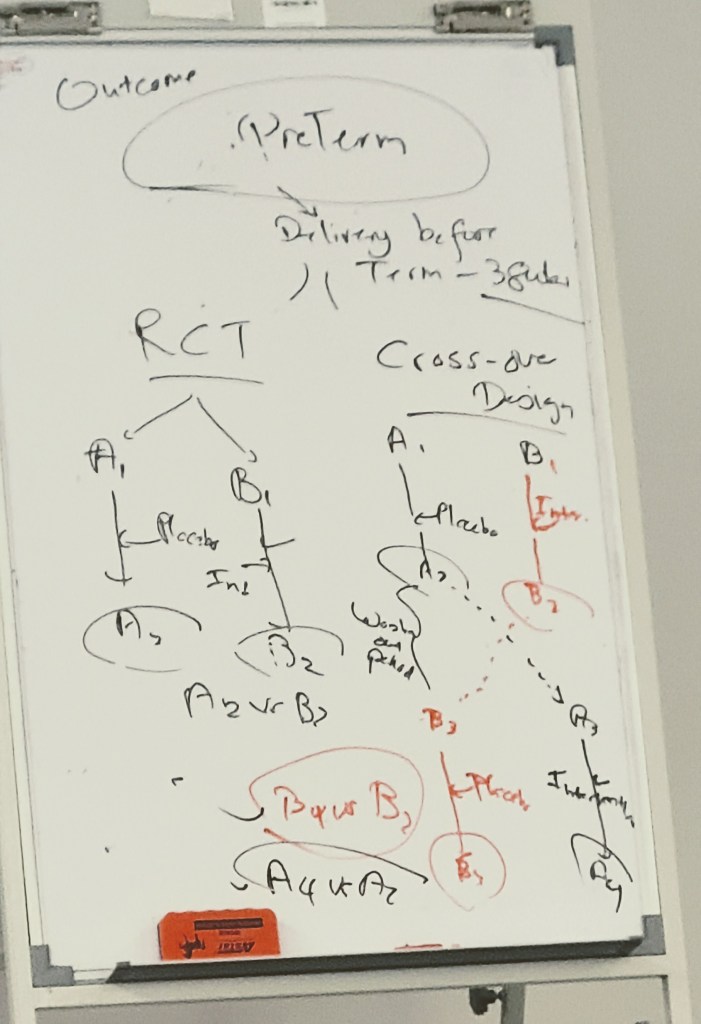 Outcome
PreTerm
Delivery before
Term - 38wks
RCT
A1
Placebo
A2
B1
Int
B2
A2 vs B2
Cross-over
Design
A1
Placebo
A2
Wash
out
Period
B1
Inter.
B2
B3
Placebo
B4
A3
Intervention
A4
B4 vs B2
A4 vs A2